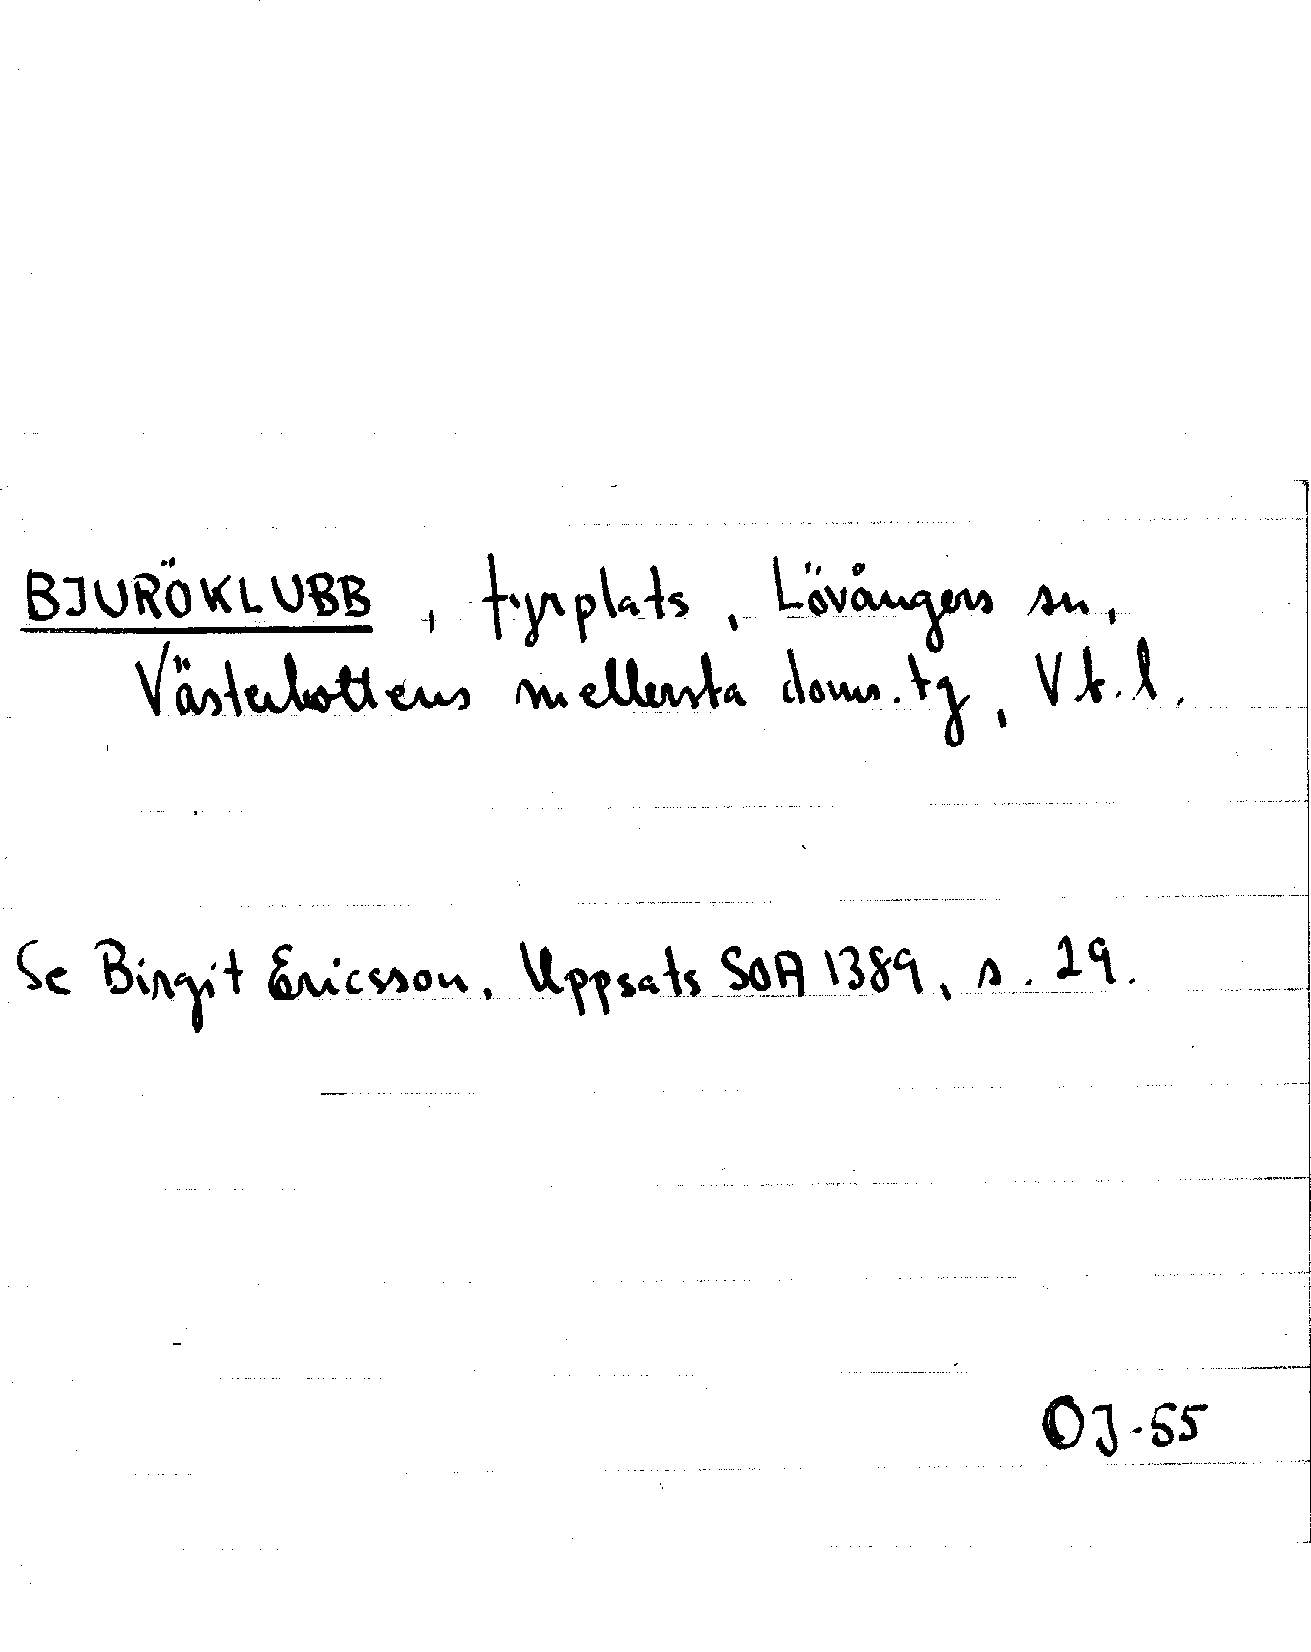 BJURÖKLUBB, fyrplats, Lövångers sn,
Västerbottens mellersta doms.tg, Vb.l.
Se Birgit Ericsson, Uppsats SOA 1389, s. 29.
OJ-55